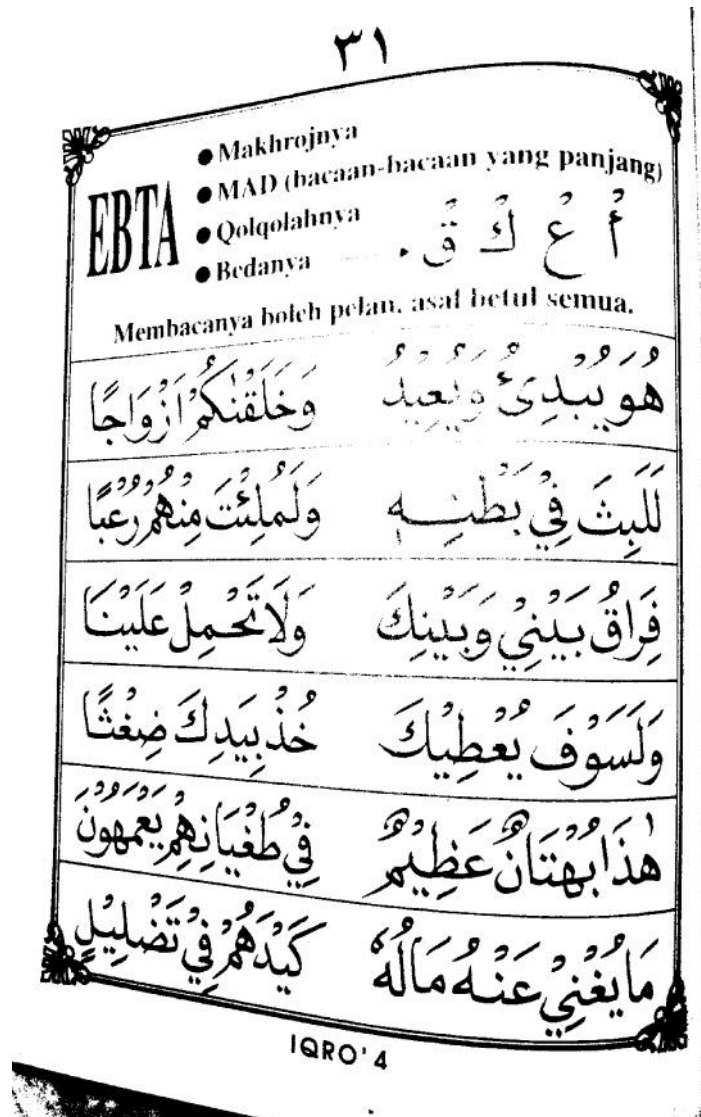 ٣١
EBTA
● Makhrojnya
● MAD (bacaan-bacaan yang panjang)
● Qolqolahnya
● Bedanya أُ عُ كُ قُ .
Membacanya boleh pelan, asal betul semua.
هُوَ يُبْدِئُ وَيُعِيْدُ وَخَلَقْنٰكُمْ اَزْوَاجًا
لَلَبِثَ فِيْ بَطْنِهٖ وَلَمُلِئْتَ مِنْهُمْ رُعْبًا
فِرَاقُ بَيْنِيْ وَبَيْنِكَ وَلَا تَحْمِلْ عَلَيْنَا
وَلَسَوْفَ يُعْطِيْكَ خُذْ بِيَدِكَ ضِغْثًا
هٰذَا بُهْتَانٌ عَظِيْمٌ فِيْ طُغْيَانِهِمْ يَعْمَهُوْنَ
مَا يُغْنِيْ عَنْهُ مَالُهٗ كَيْدَهُمْ فِيْ تَضْلِيْلٍ
IQRO' 4